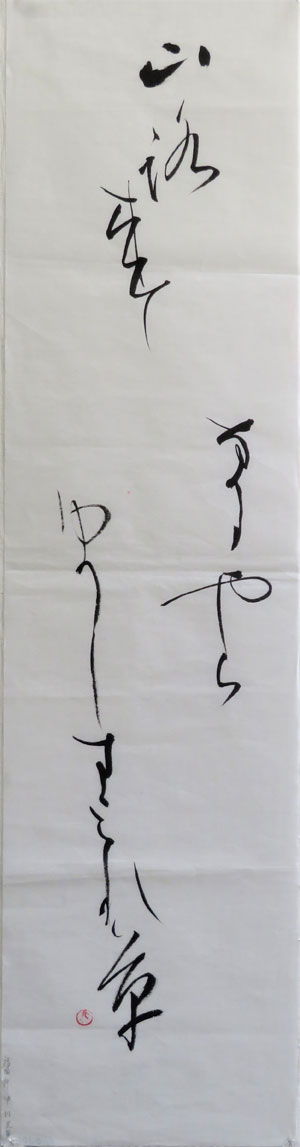 山路来て
なにやら
ゆかしすみれ草